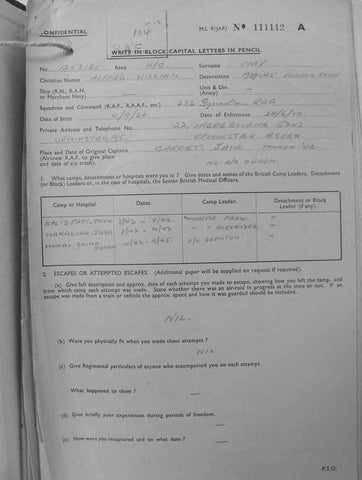 CONFIDENTIAL
104
M.I. 9/JAP/ Nº 111112 A
WRITE IN BLOCK CAPITAL LETTERS IN PENCIL
No. Rank Surname MAY.
Christian Names ALFRED WILLIAM Decorations
Ship (R.N., R.A.N. or Merchant Navy) Unit & Div. (Army)
Squadron and Command (R.A.F., R.A.A.F., etc.) 232 Squadron RAF
Date of Birth Date of Enlistment
Private Address and Telephone No. 22, INGREBOURNE GDNS.
UPMINSTER ESSEX
Place and Date of Original Capture JAVA MARCH '42
(Aircrew R.A.F. to give place
and date of a/c crash). NO A/C CRASH
1. What camps, detachments or hospitals were you in? Give dates and names of the British Camp Leaders, Detachment
(or Block) Leaders or, in the case of hospitals, the Senior British Medical Officers.
Camp or Hospital. Dates. Camp Leader. Detachment or Block Leader (if any).
JAVA
JAVA ALEXANDER
JAPAN 10/42 - 9/45. F/O
2. ESCAPES OR ATTEMPTED ESCAPES. (Additional paper will be supplied on request if required).
(a) Give full description and approx. date of each attempt you made to escape, showing how you left the camp, and
from which camp each attempt was made. State whether there was an air-raid in progress at the time or not. If an
escape was made from a train or vehicle the approx. speed and how it was guarded should be included.
NIL.
(b) Were you physically fit when you made these attempts?
NIL
(c) Give Regimental particulars of anyone who accompanied you on each attempt.
What happened to them?
(d) Give briefly your experiences during periods of freedom.
(e) How were you recaptured and on what date?
P.T.O.